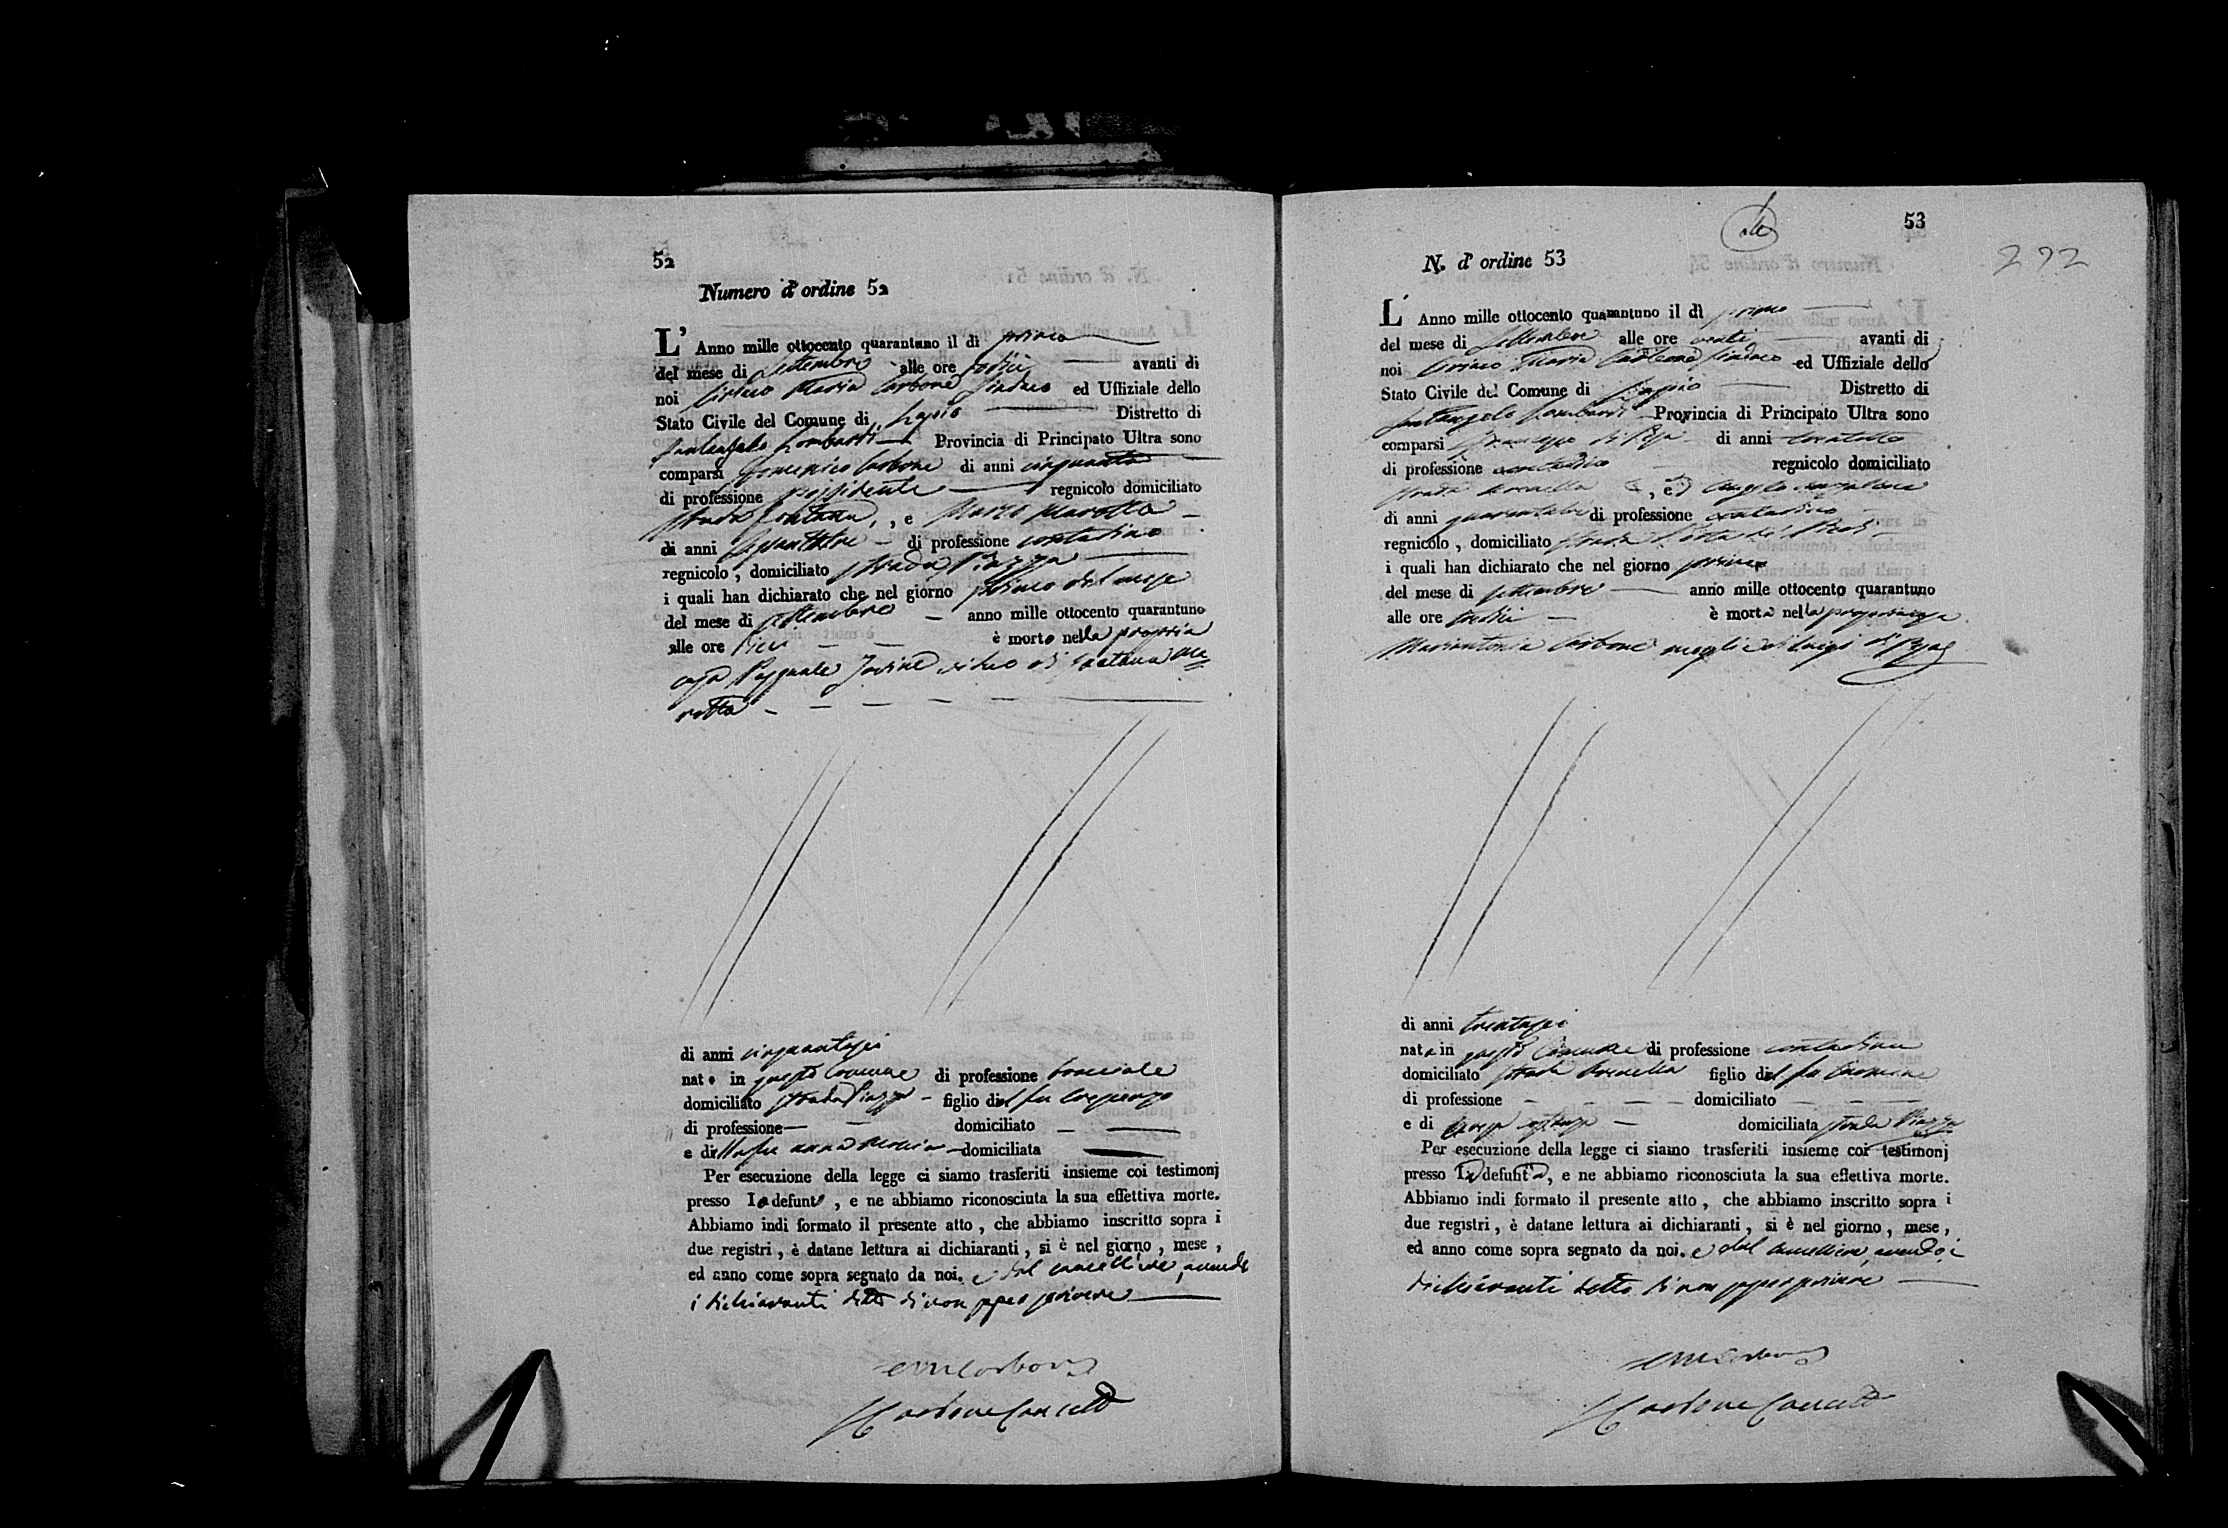 52
Numero d' ordine 52
L' Anno mille ottocento quarantuno il dì primo
del mese di Settembre alle ore sedici avanti di
noi Cirino Maria Carbone Sindaco ed Uffiziale dello
Stato Civile del Comune di Lapio Distretto di
Santangelo Lombardi Provincia di Principato Ultra sono
comparsi Domenico Carbone di anni cinquanta
di professione possidente regnicolo domiciliato
strada fontana, , e Marotta
di anni di professione contadino
regnicolo , domiciliato strada Piazza
i quali han dichiarato che nel giorno primo del mese
del mese di settembre anno mille ottocento quarantuno
alle ore dieci è morto nella propria
casa Pasquale Jovine di Ma=
rotta
di anni cinquantasei
nato in questo Comune di professione bracciale
domiciliato strada Piazza figlio del fu Crescenzo
di professione domiciliato
e di fu anna domiciliata
Per esecuzione della legge ci siamo trasferiti insieme coi testimonj
presso lo defunto , e ne abbiamo riconosciuta la sua effettiva morte.
Abbiamo indi formato il presente atto , che abbiamo inscritto sopra i
due registri , è datane lettura ai dichiaranti , si è nel giorno , mese ,
ed anno come sopra segnato da noi. e dal cancelliere, avendo
i dichiaranti detto di non saper scrivere
CM Carbone
Carbone Canc
53
N. d' ordine 53
272
L' Anno mille ottocento quarantuno il dì primo
del mese di Settembre alle ore venti avanti di
noi Cirino Maria Carbone Sindaco ed Uffiziale dello
Stato Civile del Comune di Lapio Distretto di
Santangelo Lombardi Provincia di Principato Ultra sono
comparsi di anni trentotto
di professione contadino regnicolo domiciliato
strada , ed Angelo
di anni di professione contadino
regnicolo , domiciliato strada
i quali han dichiarato che nel giorno primo
del mese di settembre anno mille ottocento quarantuno
alle ore tredici è morta nella propria casa
Mariantonia Carbone moglie di Luigi di
di anni trentasei
nata in questo Comune di professione contadina
domiciliato strada figlio del fu
di professione domiciliato
e di domiciliata strada Piazza
Per esecuzione della legge ci siamo trasferiti insieme coi testimonj
presso la defunta, e ne abbiamo riconosciuta la sua effettiva morte.
Abbiamo indi formato il presente atto , che abbiamo inscritto sopra i
due registri , è datane lettura ai dichiaranti , si è nel giorno , mese ,
ed anno come sopra segnato da noi. e dal cancelliere, avendo i
dichiaranti detto di non saper scrivere
CM Carbone
Carbone Canc